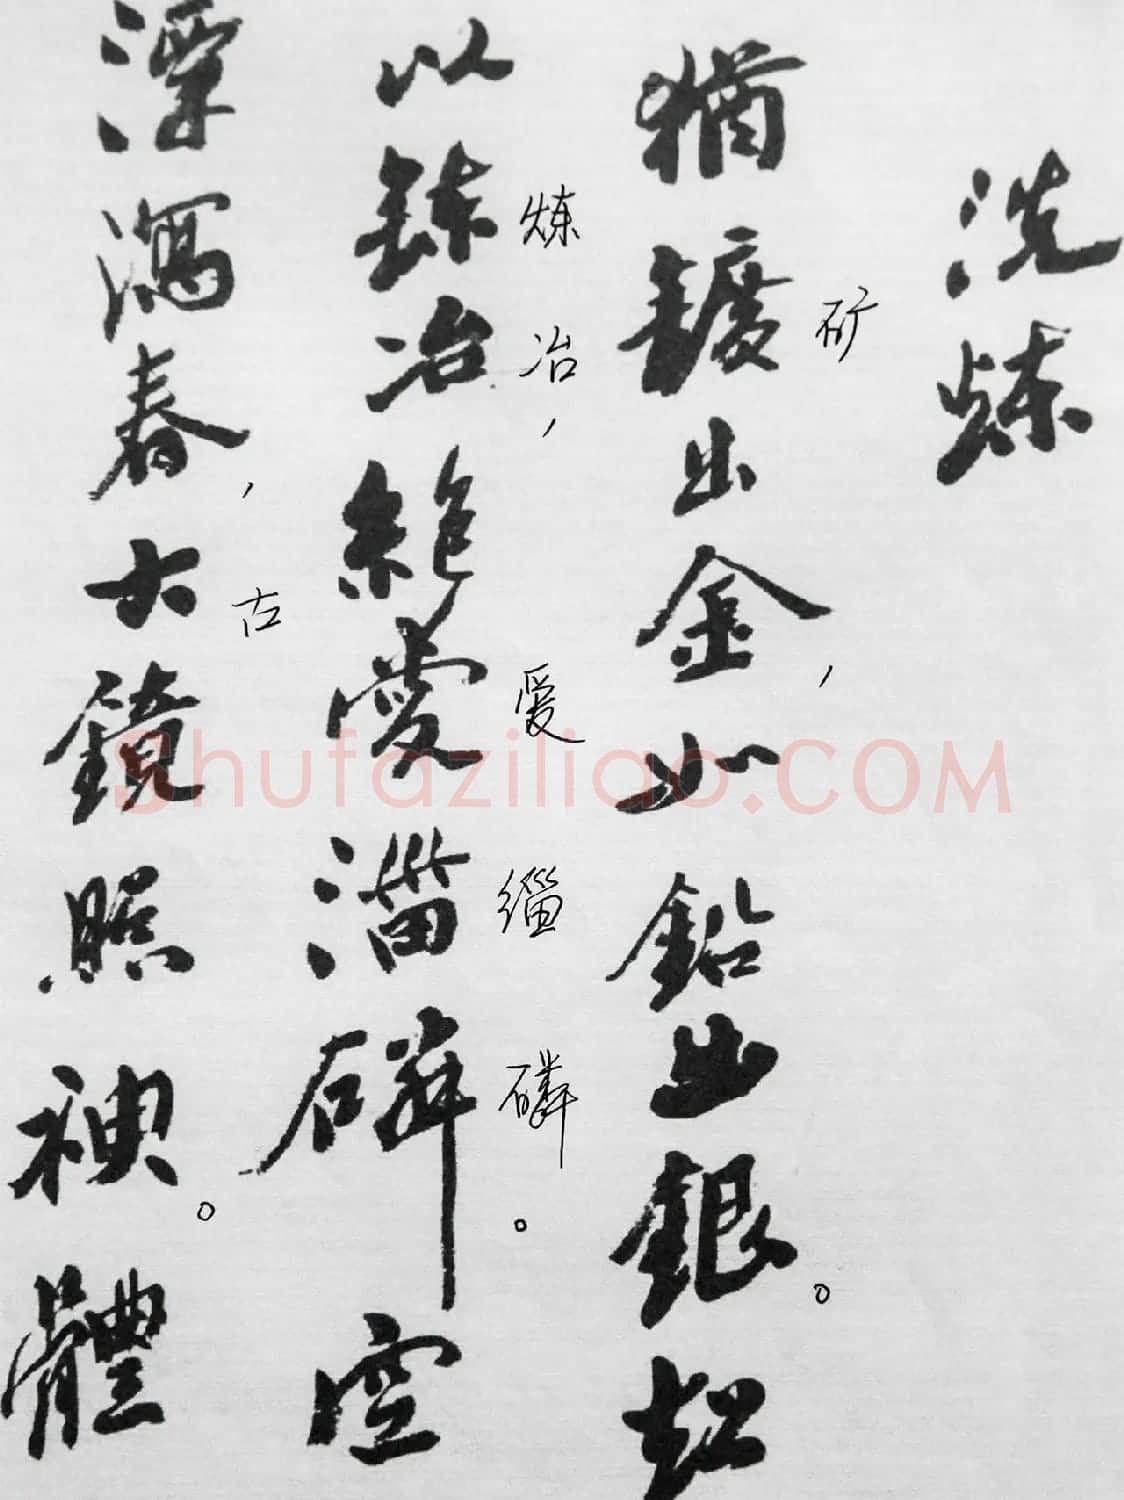 洗炼
猶鑛出金，如鉛出銀。超
矿
以鍊冶，絶愛淄磷。空
炼冶，爱缁磷。
潭瀉春，古鏡照神。體
古
Shufaziliao.COM